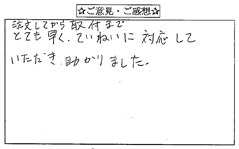 ☆ご意見・ご感想☆
注文してから取付まで
とても早く、ていねいに対応して
いただき助かりました。